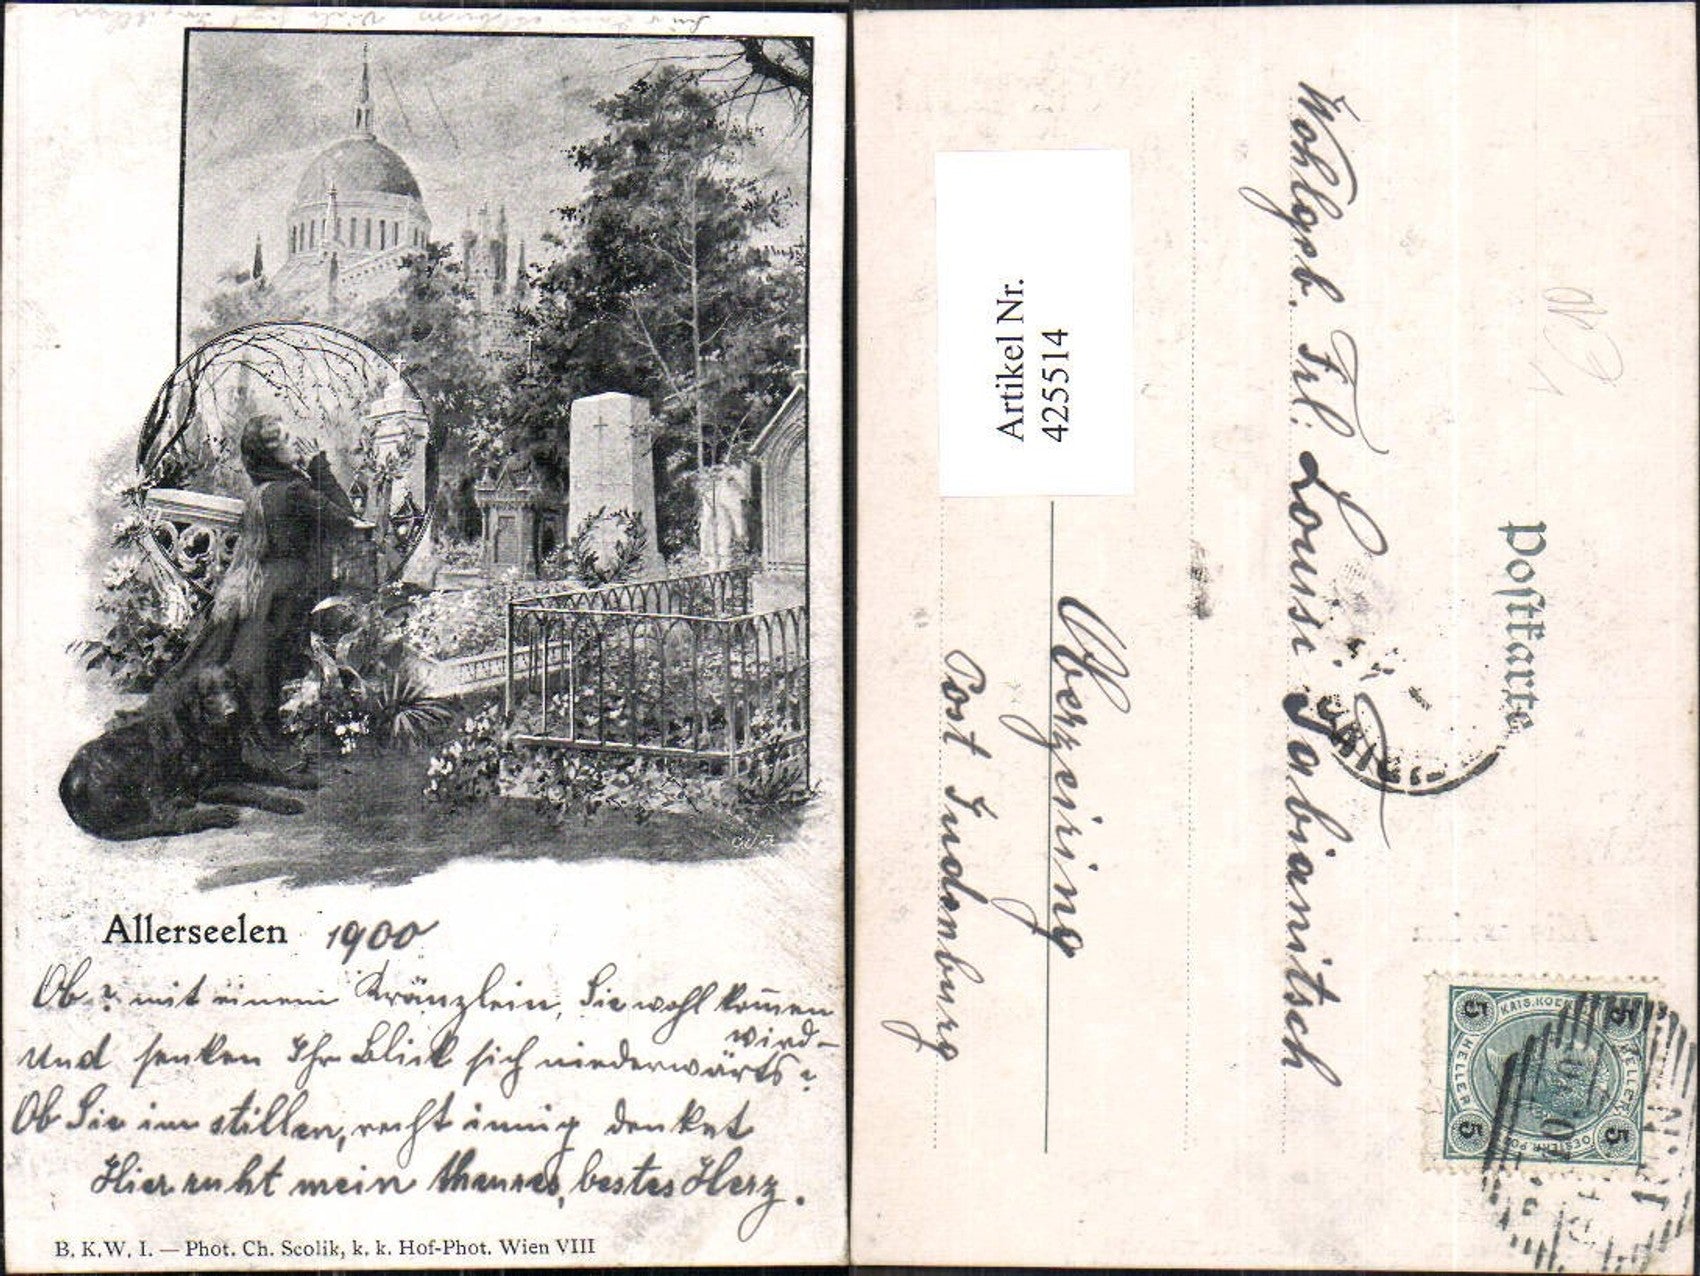 Allerseelen 1900
Ob? mit einem Kränzlein, Sie wohl kom̄en
wird-
und senken Ihr Blick sich niederwärts?
Ob Sie im stillen, recht innig denket
Hier ruht mein theures, bestes Herz.
B. K. W. I. — Phot. Ch. Scolik, k. k. Hof-Phot. Wien VIII
Postkarte
Wohlgeb. Frl: Lousi Fabianitsch
Oberzeiring
Post Judenburg
Artikel Nr.
425514
KAIS. KOEN
5 5
HELLER HELLER
5 5
OESTERR. PO